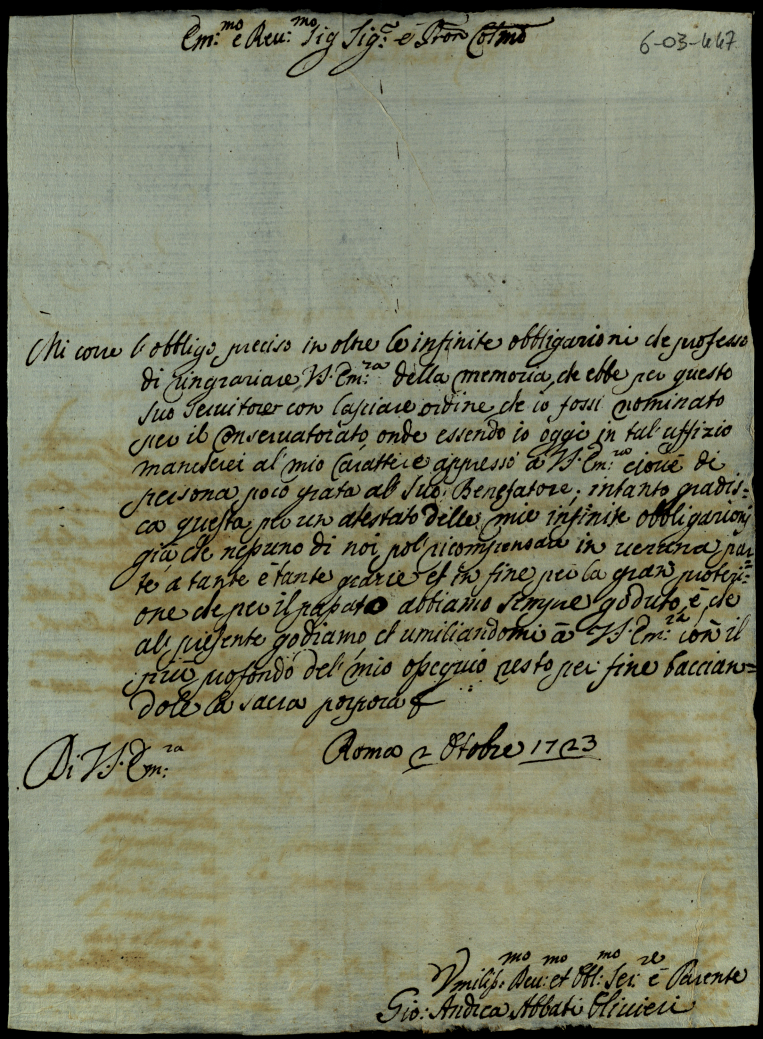 Em:mo e Reu:mo Sig Sig:r e Pron Colmo
6-03-447
Mi corre l'obbligo preciso in oltre le infinite obbligazioni che professo
di ringraziare V.S. Em:za della memoria che ebbe per questo
suo seruitore con lasciare ordine che io fossi nominato
per il Conseruatorato onde essendo io oggi in tal uffizio
mancherei al mio Carattere appresso a V.S. Em: cioue di
persona poco grata al suo Benefatore; intanto gradis=
ca questa per un atestato delle mie infinite obbligazioni
già che nessuno di noi pol ricompensare in ueruna par
te a tante e tante grazie et in fine per la gran protezi=
one che per il papato abbiamo sempre goduto, e che
al presente godiamo et umiliandomi a V.S. Em:za con il
più profondo del mio ossequio resto per fine baccian=
dole la sacra porpora
Roma 2 Ottobre 1723
Di V.S. Em:za
Vmiliss:mo Deu:mo et Obl:mo Ser:re e Parente
Gio: Andrea Abbati Oliuieri